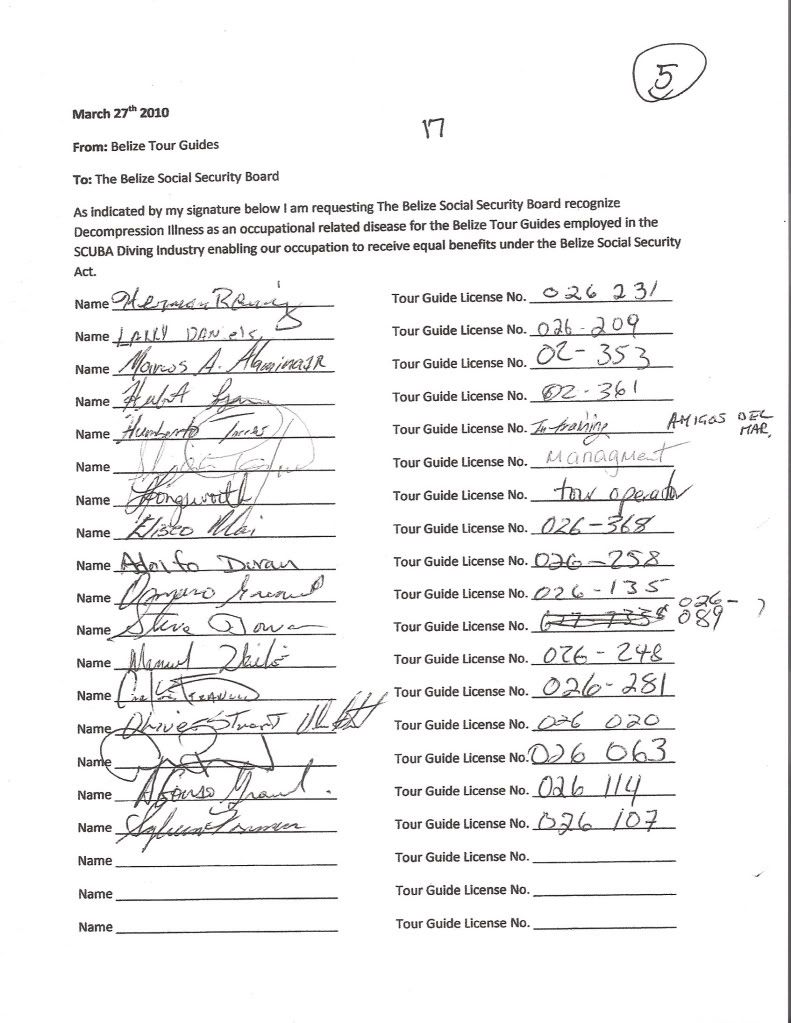 5
March 27th 2010
17
From: Belize Tour Guides
To: The Belize Social Security Board
As indicated by my signature below I am requesting The Belize Social Security Board recognize
Decompression Illness as an occupational related disease for the Belize Tour Guides employed in the
SCUBA Diving Industry enabling our occupation to receive equal benefits under the Belize Social Security
Act.
Name Herman Tour Guide License No. 026 231
Name LARRY DANiels Tour Guide License No. 026-209
Name Marcos A. Alamina JR Tour Guide License No. 02-353
Name Tour Guide License No. 02-361
Name Humberto Torres Tour Guide License No. In-training AMIGOS DEL
MAR.
Name Tour Guide License No. Managment
Name Longsworth Tour Guide License No. tour operador
Name Eliseo Tour Guide License No. 026-368
Name Adolfo Duran Tour Guide License No. 026-258
Name Tour Guide License No. 026-135
Name Steve Tour Guide License No. 026-
089
Name Manuel Tour Guide License No. 026-248
Name Tour Guide License No. 026-281
Name Stuart Tour Guide License No. 026 020
Name Tour Guide License No. 026 063
Name Tour Guide License No. 026 114
Name Tour Guide License No. 026 107
Name Tour Guide License No.
Name Tour Guide License No.
Name Tour Guide License No.